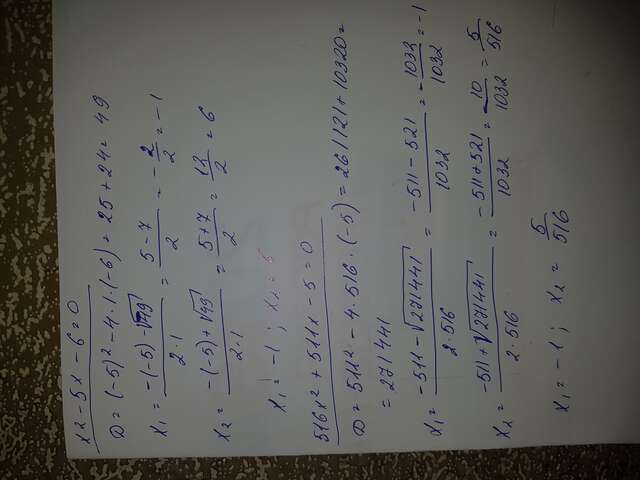 x² - 5x - 6 = 0
D = (-5)² - 4·1·(-6) = 25 + 24 = 49
x₁ = (-(-5) - √49)/(2·1) = (5 - 7)/2 = -2/2 = -1
x₂ = (-(-5) + √49)/(2·1) = (5 + 7)/2 = 12/2 = 6
x₁ = -1 ; x₂ =
516x² + 511x - 5 = 0
D = 511² - 4·516·(-5) = 261121 + 10320 =
= 271441
x₁ = (-511 - √271441)/(2·516) = (-511 - 521)/1032 = -1032/1032 = -1
x₂ = (-511 + √271441)/(2·516) = (-511 + 521)/1032 = 10/1032 = 5/516
x₁ = -1 ; x₂ = 5/516